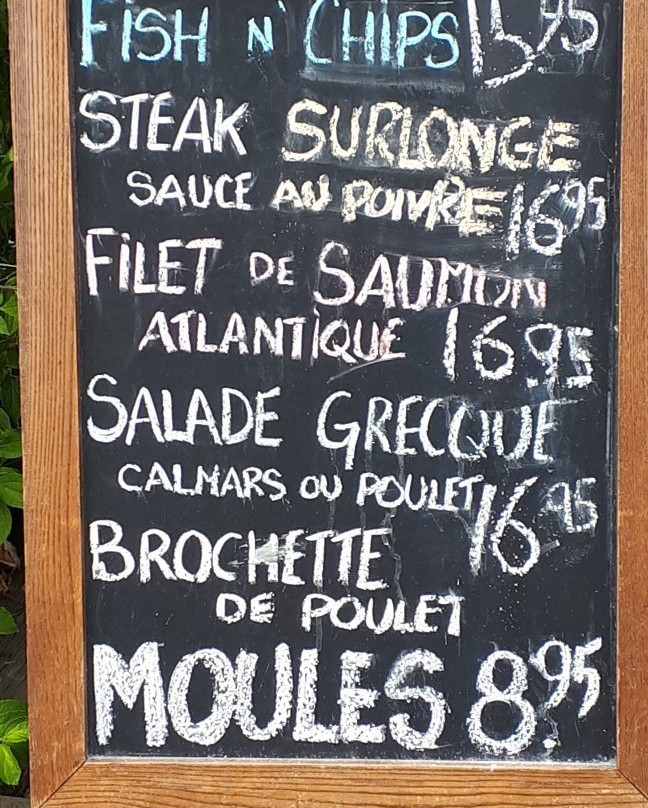 FISH N' CHIPS 15.95
STEAK SURLONGE
SAUCE AU POIVRE 16 95
FILET DE SAUMON
ATLANTIQUE 16 95
SALADE GRECQUE
CALMARS OU POULET 16 95
BROCHETTE
DE POULET
MOULES 8.95